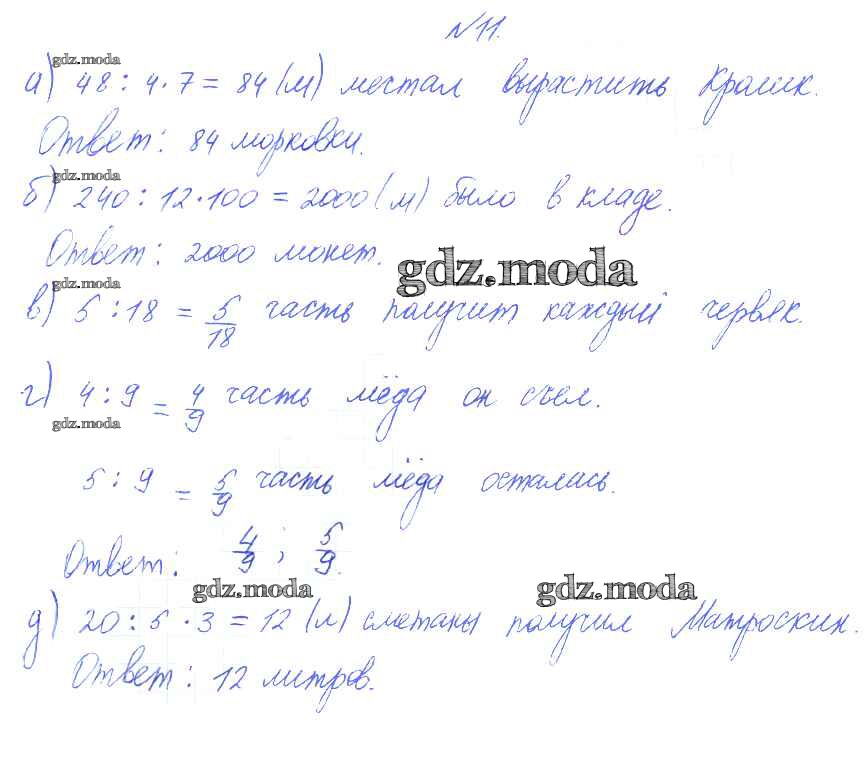 №11.
gdz.moda
а) 48 : 4 · 7 = 84 (м) мечтал вырастить Кролик.
Ответ: 84 морковки.
gdz.moda
б) 240 : 12 · 100 = 2000 (м) было в кладе.
Ответ: 2000 монет.
gdz.moda
gdz.moda
в) 5 : 18 = 5/18 часть получит каждый червяк.
г) 4 : 9 = 4/9 часть мёда он съел.
gdz.moda
5 : 9 = 5/9 часть мёда осталась.
Ответ: 4/9 ; 5/9.
gdz.moda gdz.moda
д) 20 : 5 · 3 = 12 (л) сметаны получил Матроскин.
Ответ: 12 литров.